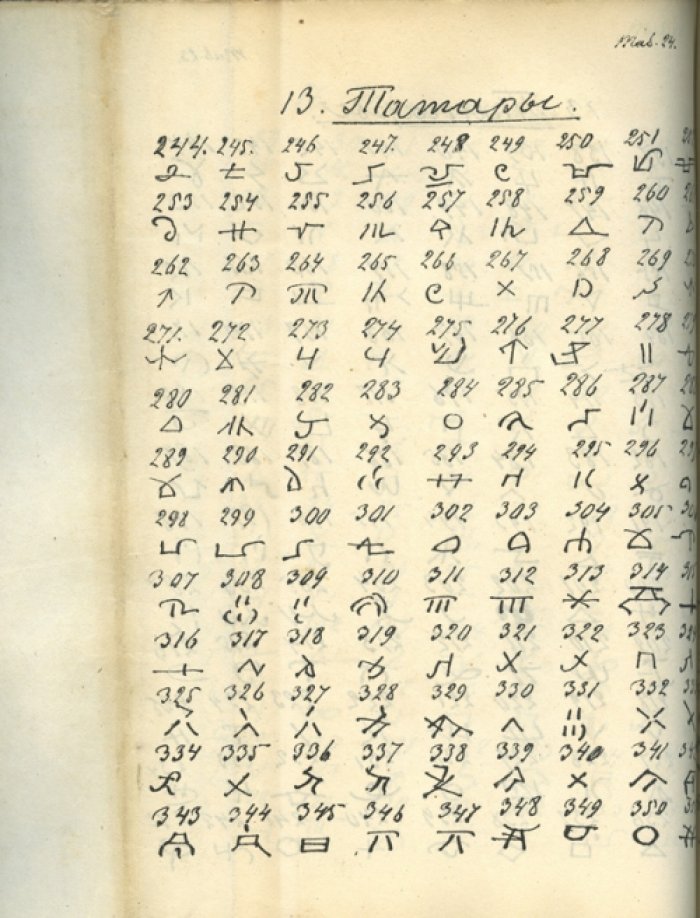 Таб. 24.
13. Татары.
244. 245. 246 247. 248 249 250 251
253 254 255 256 257 258 259 260
262 263 264 265 266 267 268 269
271. 272 273 274 275 276 277 278
280 281 282 283 284 285 286 287
289 290 291 292 293 294 295 296
298 299 300 301 302 303 304 305
307 308 309 310 311 312 313 314
316 317 318 319 320 321 322 323
325 326 327 328 329 330 331 332
334 335 336 337 338 339 340 341
343 344 345 346 347 348 349 350